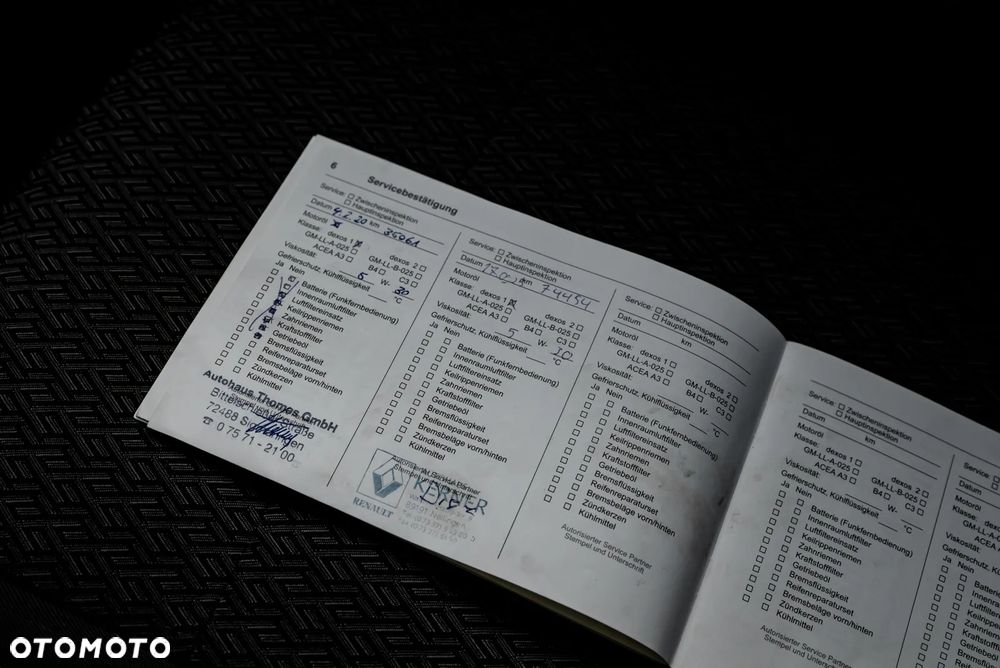 6
Servicebestätigung
Service: Zwischeninspektion
Hauptinspektion
Datum 4.2.20 km 35061
Motoröl
Klasse: dexos 1 dexos 2
GM-LL-A-025 GM-LL-B-025
ACEA A3 B4 C3
Viskosität: 5 W- 30
Gefrierschutz, Kühlflüssigkeit °C
Ja Nein
Batterie (Funkfernbedienung)
Innenraumluftfilter
Luftfiltereinsatz
Keilrippenriemen
Zahnriemen
Kraftstofffilter
Getriebeöl
Bremsflüssigkeit
Reifenreparaturset
Bremsbeläge vorn/hinten
Zündkerzen
Kühlmittel
Autohaus Thomes GmbH
72488
☎ 0 75 71 - 21 00
Service: Zwischeninspektion
Hauptinspektion
Datum km 74454
Motoröl
Klasse: dexos 1 dexos 2
GM-LL-A-025 GM-LL-B-025
ACEA A3 B4 C3
Viskosität: 5 W-
Gefrierschutz, Kühlflüssigkeit °C
Ja Nein
Batterie (Funkfernbedienung)
Innenraumluftfilter
Luftfiltereinsatz
Keilrippenriemen
Zahnriemen
Kraftstofffilter
Getriebeöl
Bremsflüssigkeit
Reifenreparaturset
Bremsbeläge vorn/hinten
Zündkerzen
Kühlmittel
Autorisierter Service Partner
RENAULT
89191 Nellingen
Service: Zwischeninspektion
Hauptinspektion
Datum km
Motoröl
Klasse: dexos 1 dexos 2
GM-LL-A-025 GM-LL-B-025
ACEA A3 B4 C3
Viskosität: W-
Gefrierschutz, Kühlflüssigkeit °C
Ja Nein
Batterie (Funkfernbedienung)
Innenraumluftfilter
Luftfiltereinsatz
Keilrippenriemen
Zahnriemen
Kraftstofffilter
Getriebeöl
Bremsflüssigkeit
Reifenreparaturset
Bremsbeläge vorn/hinten
Zündkerzen
Kühlmittel
Autorisierter Service Partner
Stempel und Unterschrift
Service: Zwischeninspektion
Hauptinspektion
Datum km
Motoröl
Klasse: dexos 1 dexos 2
GM-LL-A-025 GM-LL-B-025
ACEA A3 B4 C3
Viskosität: W-
Gefrierschutz, Kühlflüssigkeit °C
Ja Nein
Batterie (Funkfernbedienung)
Innenraumluftfilter
Luftfiltereinsatz
Keilrippenriemen
Zahnriemen
Kraftstofffilter
Getriebeöl
Bremsflüssigkeit
Reifenreparaturset
Bremsbeläge vorn/hinten
Zündkerzen
Kühlmittel
Autorisierter Service Partner
Stempel und Unterschrift
Service:
Datum
Motoröl
Klasse:
Viskosität:
Ja Nein
OTOMOTO